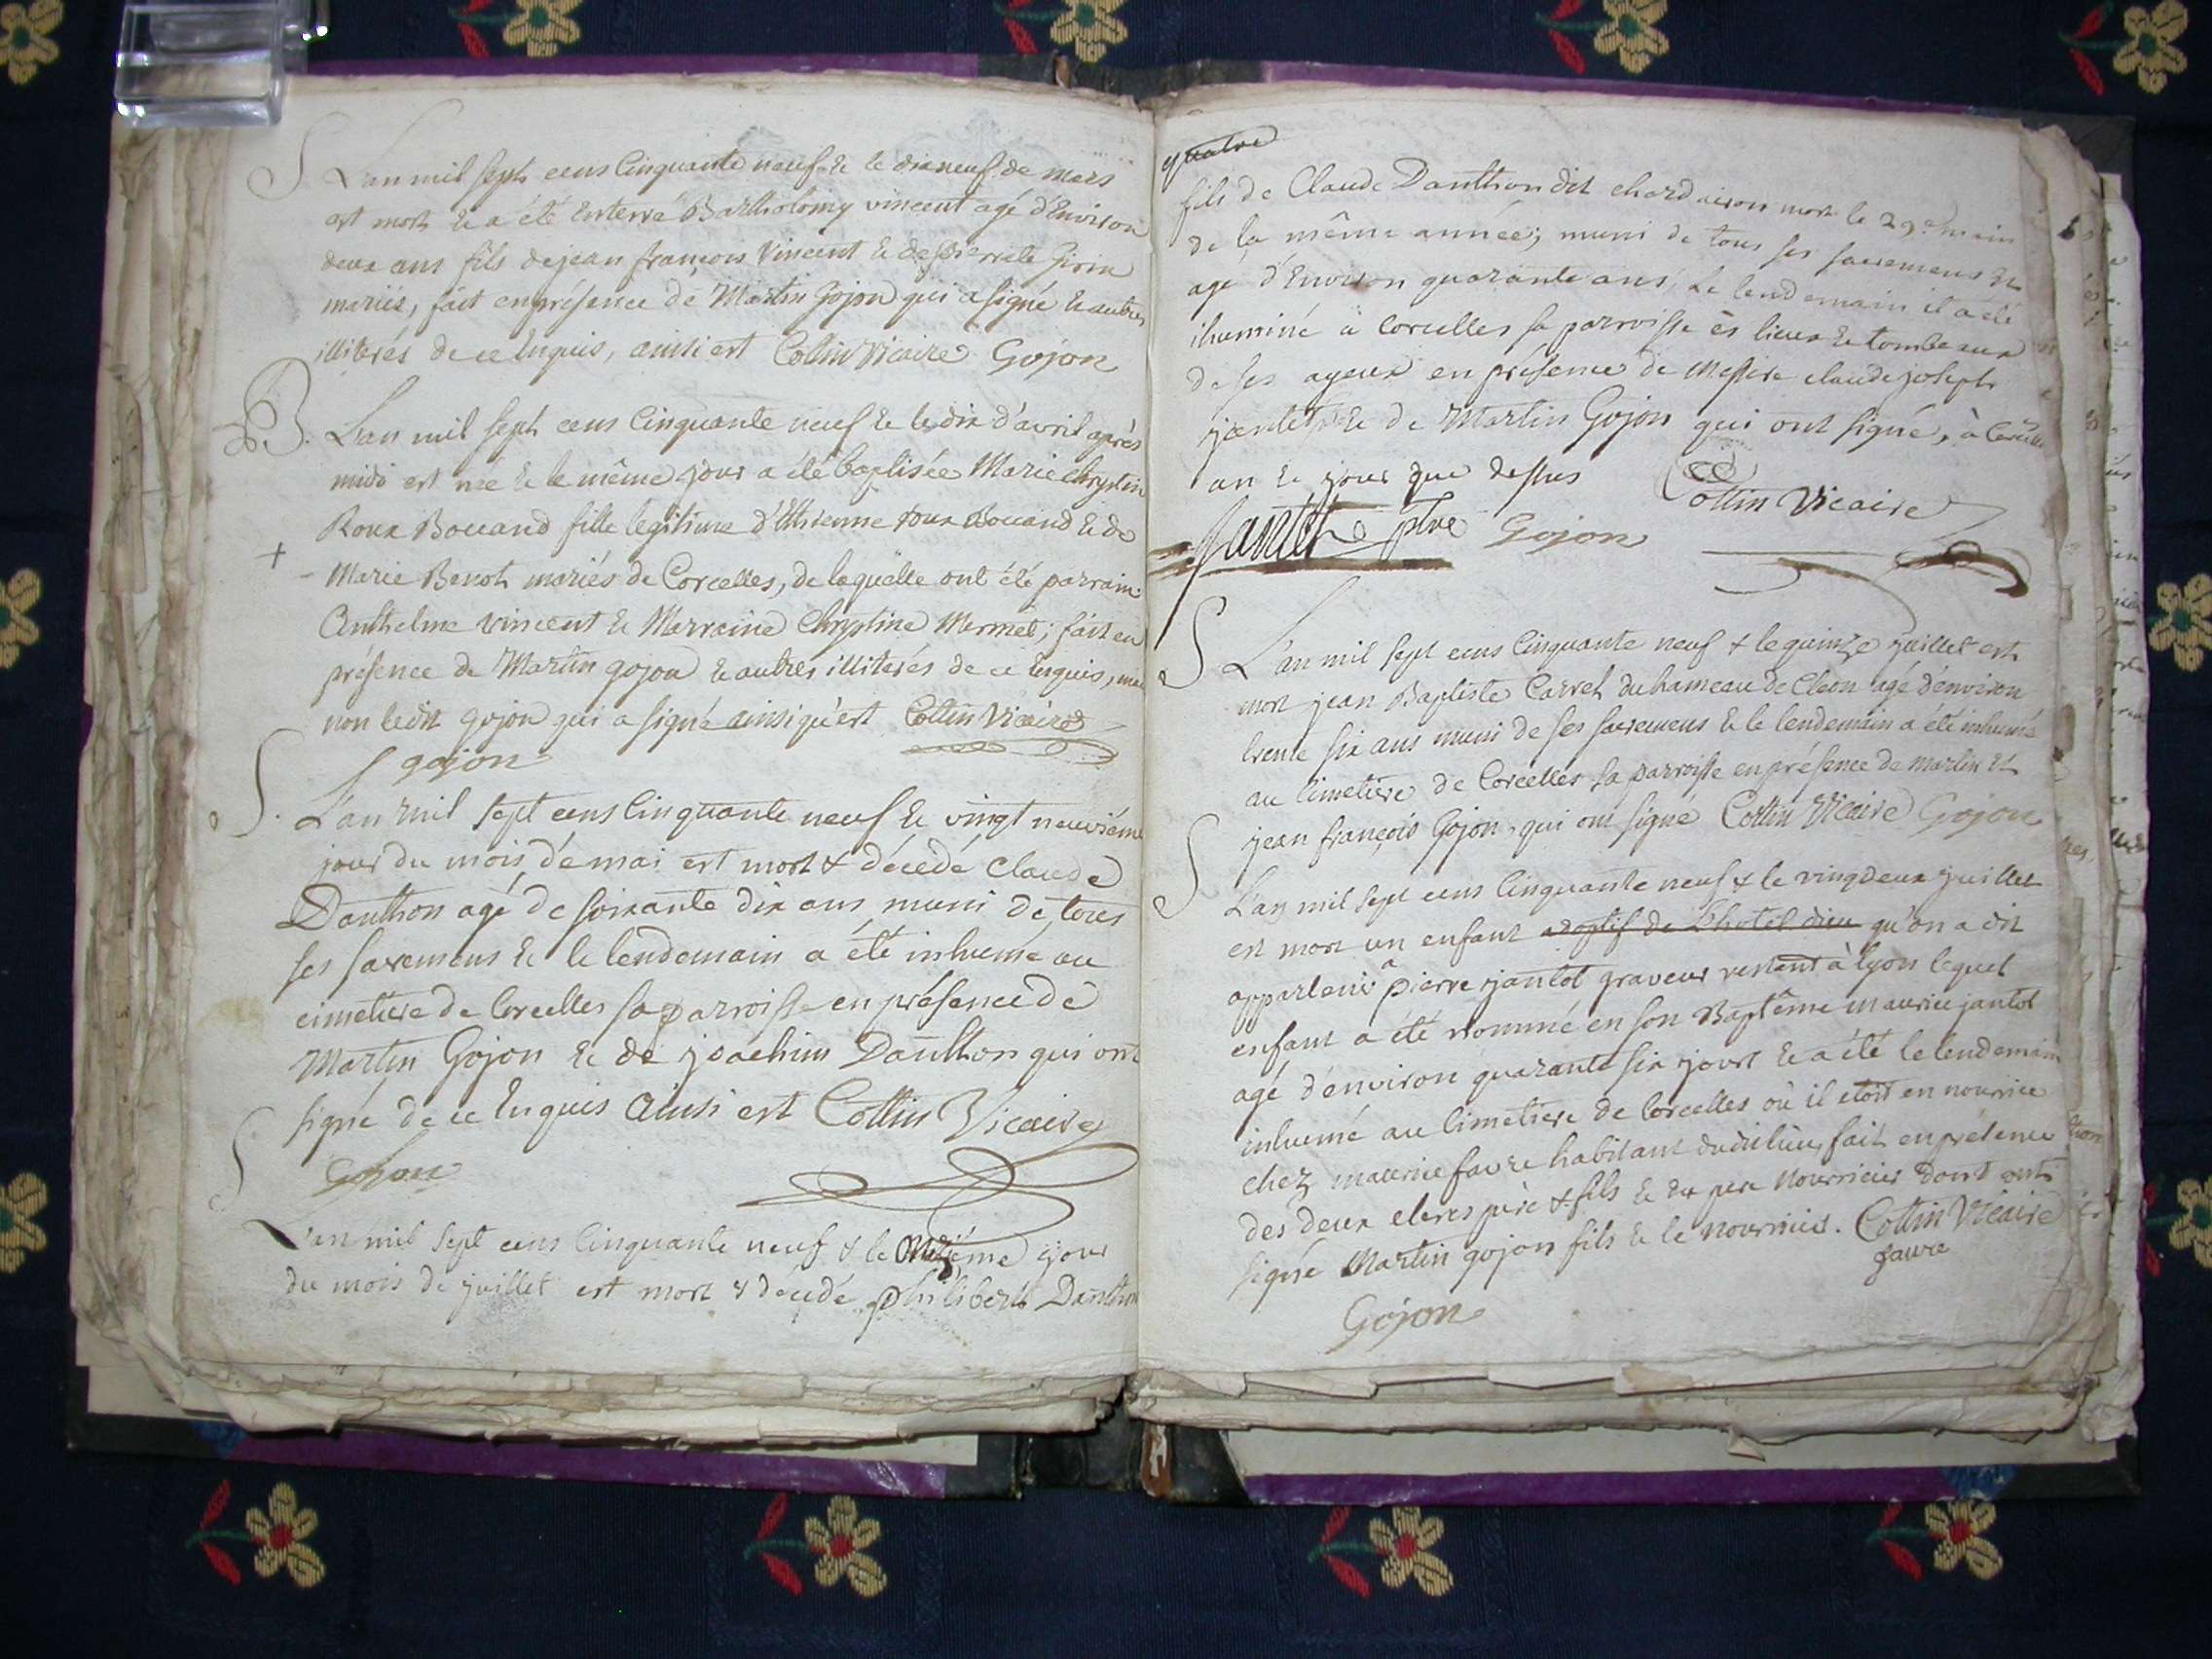 S L'an mil sept cens Cinquante neuf & le dix neuf de mars
est mort & a été enterré Bartholomy vincent agé d'Environ
deux ans fils de jean françois Vincent & de pierrete Girin
mariés, fait en présence de Martin Gojon qui a signé & autres
illiterés de ce Enquis, ainsi est Collin Vicaire Gojon
B. L'an mil sept cens Cinquante neuf & le dix d'avril après
midi est née & le même jour a été baptisée Marie Chrystin
Roux Bouand fille legitime d'Ethienne roux Bouand & de
+ Marie Benoh mariés de Corcelles, de laquelle ont été parrain
Anthelme vincent & Marraine Chrystine Mermet; fait en
présence de Martin gojon & autres illiterés de ce Enquis,
non ledit gojon qui a signé ainsi qu'est Collin Vicaire
gojon
S. L'an mil sept cens Cinquante neuf & vingt neuviéme
jour du mois de mai est mort & décédé Claude
Danthon agé de soixante dix ans muni de tous
ses sacremens & le lendemain a été inhumé au
cimetiere de Corcelles sa parroisse en présence de
Martin Gojon & de joachim Danthon qui ont
signé de ce Enquis ainsi est Collin Vicaire
Gojon
S L'an mil sept cens Cinquante neuf & le jour
du mois de juillet est mort & décédé philibert Danthon
quatre
fils de Claude Danthon dit mort le 29e main
de la même année; muni de tous ses sacremens et
agé d'Environ quarante ans, Le lendemain il a été
ihuminé à Corcelles sa parroisse ès lieux & tombeaux
de ses ayeux en présence de Messire claude joseph
jantet & de Martin Gojon qui ont signé, à Corcelles
an & jour que dessus Collin Vicaire
Jantet ptre Gojon
S L'an mil sept cens Cinquante neuf & le quinze juillet est
mort jean Baptiste Carret du hameau de Cleon agé d'environ
trente six ans muni de ses sacremens & le lendemain a été inhumé
au Cimetiere de Corcelles sa parroisse en présence de martin et
jean françois Gojon, qui ont signé Collin Vicaire Gojon
S L'an mil sept cens Cinquante neuf & le vingdeux juillet
est mort un enfant adoptif de L'hotel dieu qu'on a dit
appartenir a pierre jantot graveur restant à lyon lequel
enfant a été nommé en son Baptême maurice jantot
agé d'environ quarante six jours & a été le lendemain
inhumé au Cimetiere de Corcelles où il etoit en nourrice
chez maurice favre habitant dudit lieu, fait en présence
des deux clercs père & fils & du pere Nourricier dont ont
signé Martin gojon fils & le nourricier. Collin Vicaire
favre
Gojon